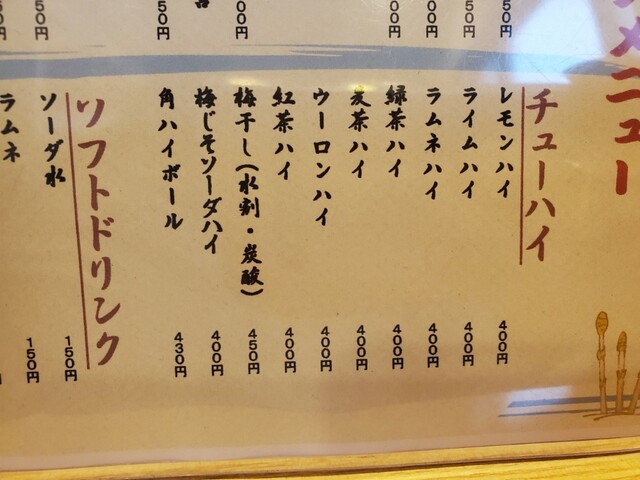 メニュー
チューハイ
レモンハイ 400円
ライムハイ 400円
ラムネハイ 400円
緑茶ハイ 400円
麦茶ハイ 400円
ウーロンハイ 400円
紅茶ハイ 400円
梅干し(水割・炭酸) 450円
梅じそソーダハイ 400円
角ハイボール 430円
ソフトドリンク
ソーダ水 150円
ラムネ 150円